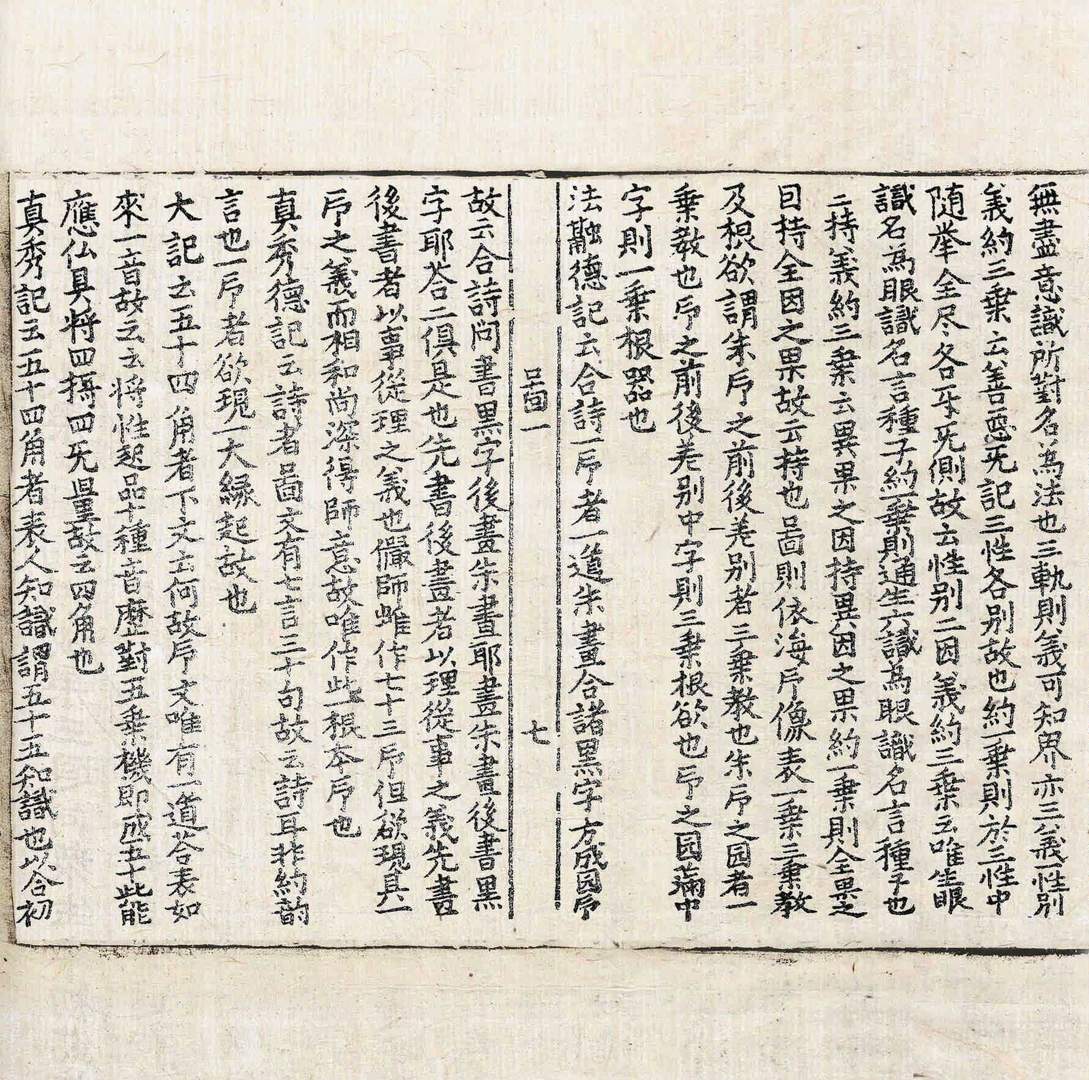 無盡意識所對名為法也三軌則義可知界亦三義一性別
義約三乗云善惡旡記三性各别故也約一乗則於三性中
随举全尽各牙旡側故云性别二因義約三乗云唯生眼
識名為眼識名言種子約一乗則通生六識為眼識名言種子也
二持義約三乗云異果之因持異因之果約一乗則全果之
目持全因之果故云持也啚則依海卬像表一乗三乗教
及根欲謂朱卬之前後差别者三乗教也朱卬之园者一
乗教也卬之前後差别中字則三乗根欲也卬之园滿中
字則一乗根器也
法融德記云合詩一卬者一道朱畫合諸黑字方成园卬
啚一 七
故云合詩问書黑字後畫朱畫耶畫朱畫後書黑
字耶荅二俱是也先書後畫者以理從事之義先畫
後書者以事從理之義也儼師雖作七十三卬但欲現其一
卬之義而相和尚深得師意故唯作此一根本卬也
真秀德記云詩者啚文有七言三十句故云詩耳非約韵
言也一卬者欲現一大縁起故也
大記云五十四角者下文云何故卬文唯有一道荅表如
來一音故云云将性起品十種音歷對五乗機即成五十此能
應仏具将四摂四旡量故云四角也
真秀記云五十四角者表人知識謂五十五知識也以合初